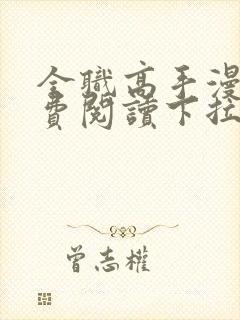 全職高手漫
費閱讀下拉
曾志權